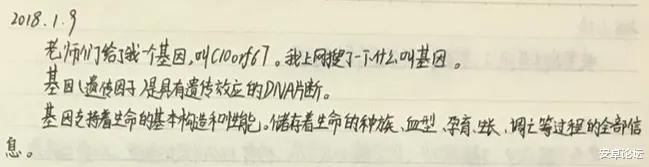 2018.1.9
老师们给了我一个基因,叫C10orf67。我上网搜了一下什么叫基因。
基因(遗传因子)是具有遗传效应的DNA片断。
基因支持着生命的基本构造和性能。储存着生命的种族、血型、孕育、生长、凋亡等过程的全部信
息。
安卓论坛